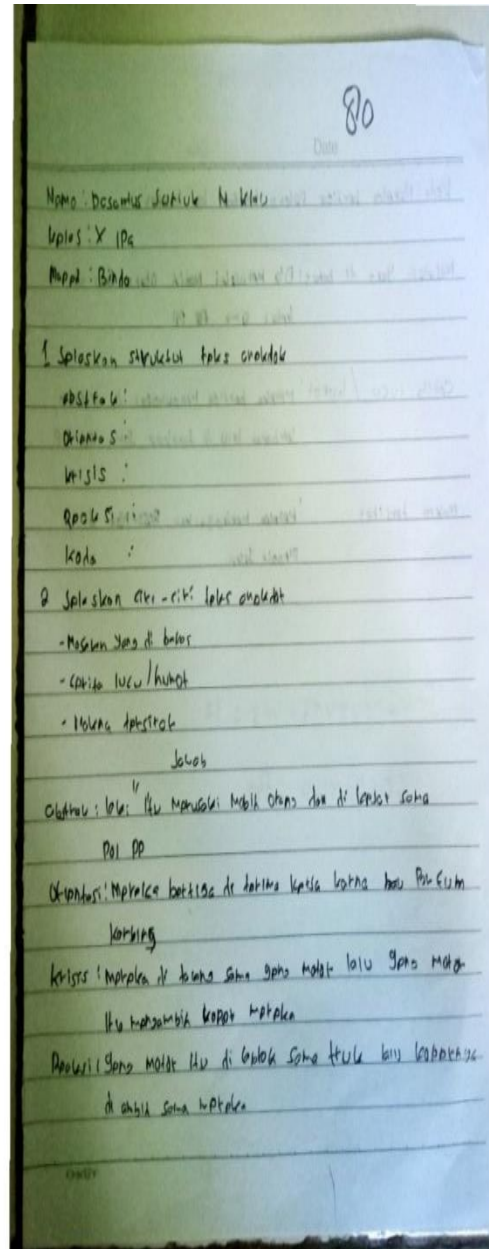 80
Date
Nama : Desantus Juniuk N Klau
Kelas : X IPA
Mapel : Bindo
1 Jelaskan struktur teks anekdok
abstrak :
Orientas :
krisis :
Reaksi :
koda :
2 Jelaskan ciri-ciri teks anekdot
- Masalah yang di bahas
- cerita lucu / humor
- Makna tersirat
Jawab
Abstrak : laki" itu merusaki mobil orang dan di kejar sama
Pol PP
Orientasi : Mereka bertiga di terima kerja karna bau
kambing
krisis : mereka di sama geng motor lalu geng motor
itu mengambil koper mereka
Reaksi : geng motor itu di sama truk lalu kopernya
di ambil sama mereka